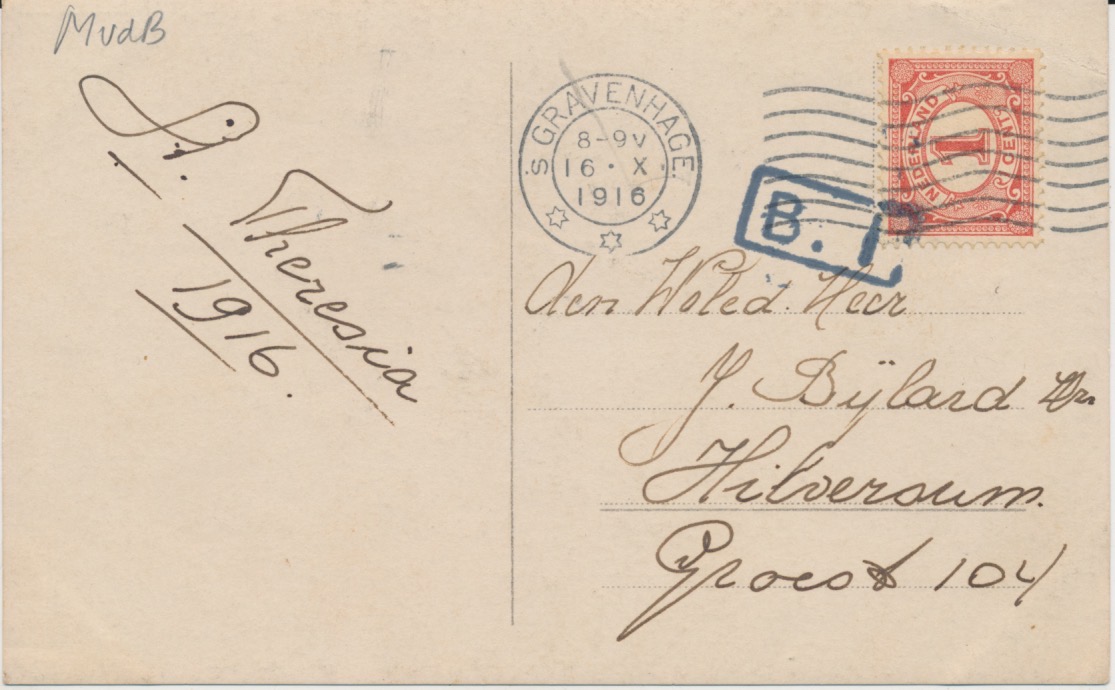 MvdB
St. Theresia
1916.
'S GRAVENHAGE.
8-9V
16 · X ·
1916
NEDERLAND
1
1 CENT
B. P
den Weled. Heer
J. Bijlard
Hilversum.
Groest 104